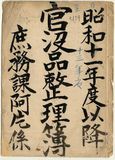 昭和十一年度以降
官没品整理簿
庶務課阿片係